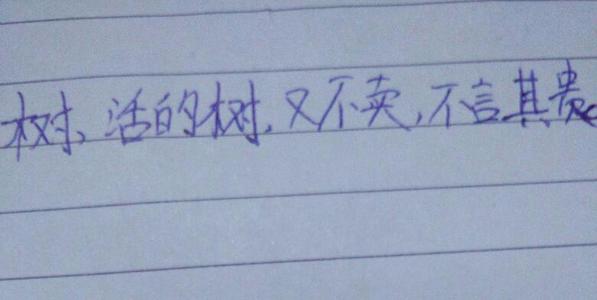 树、活的树,又不卖,不言其贵